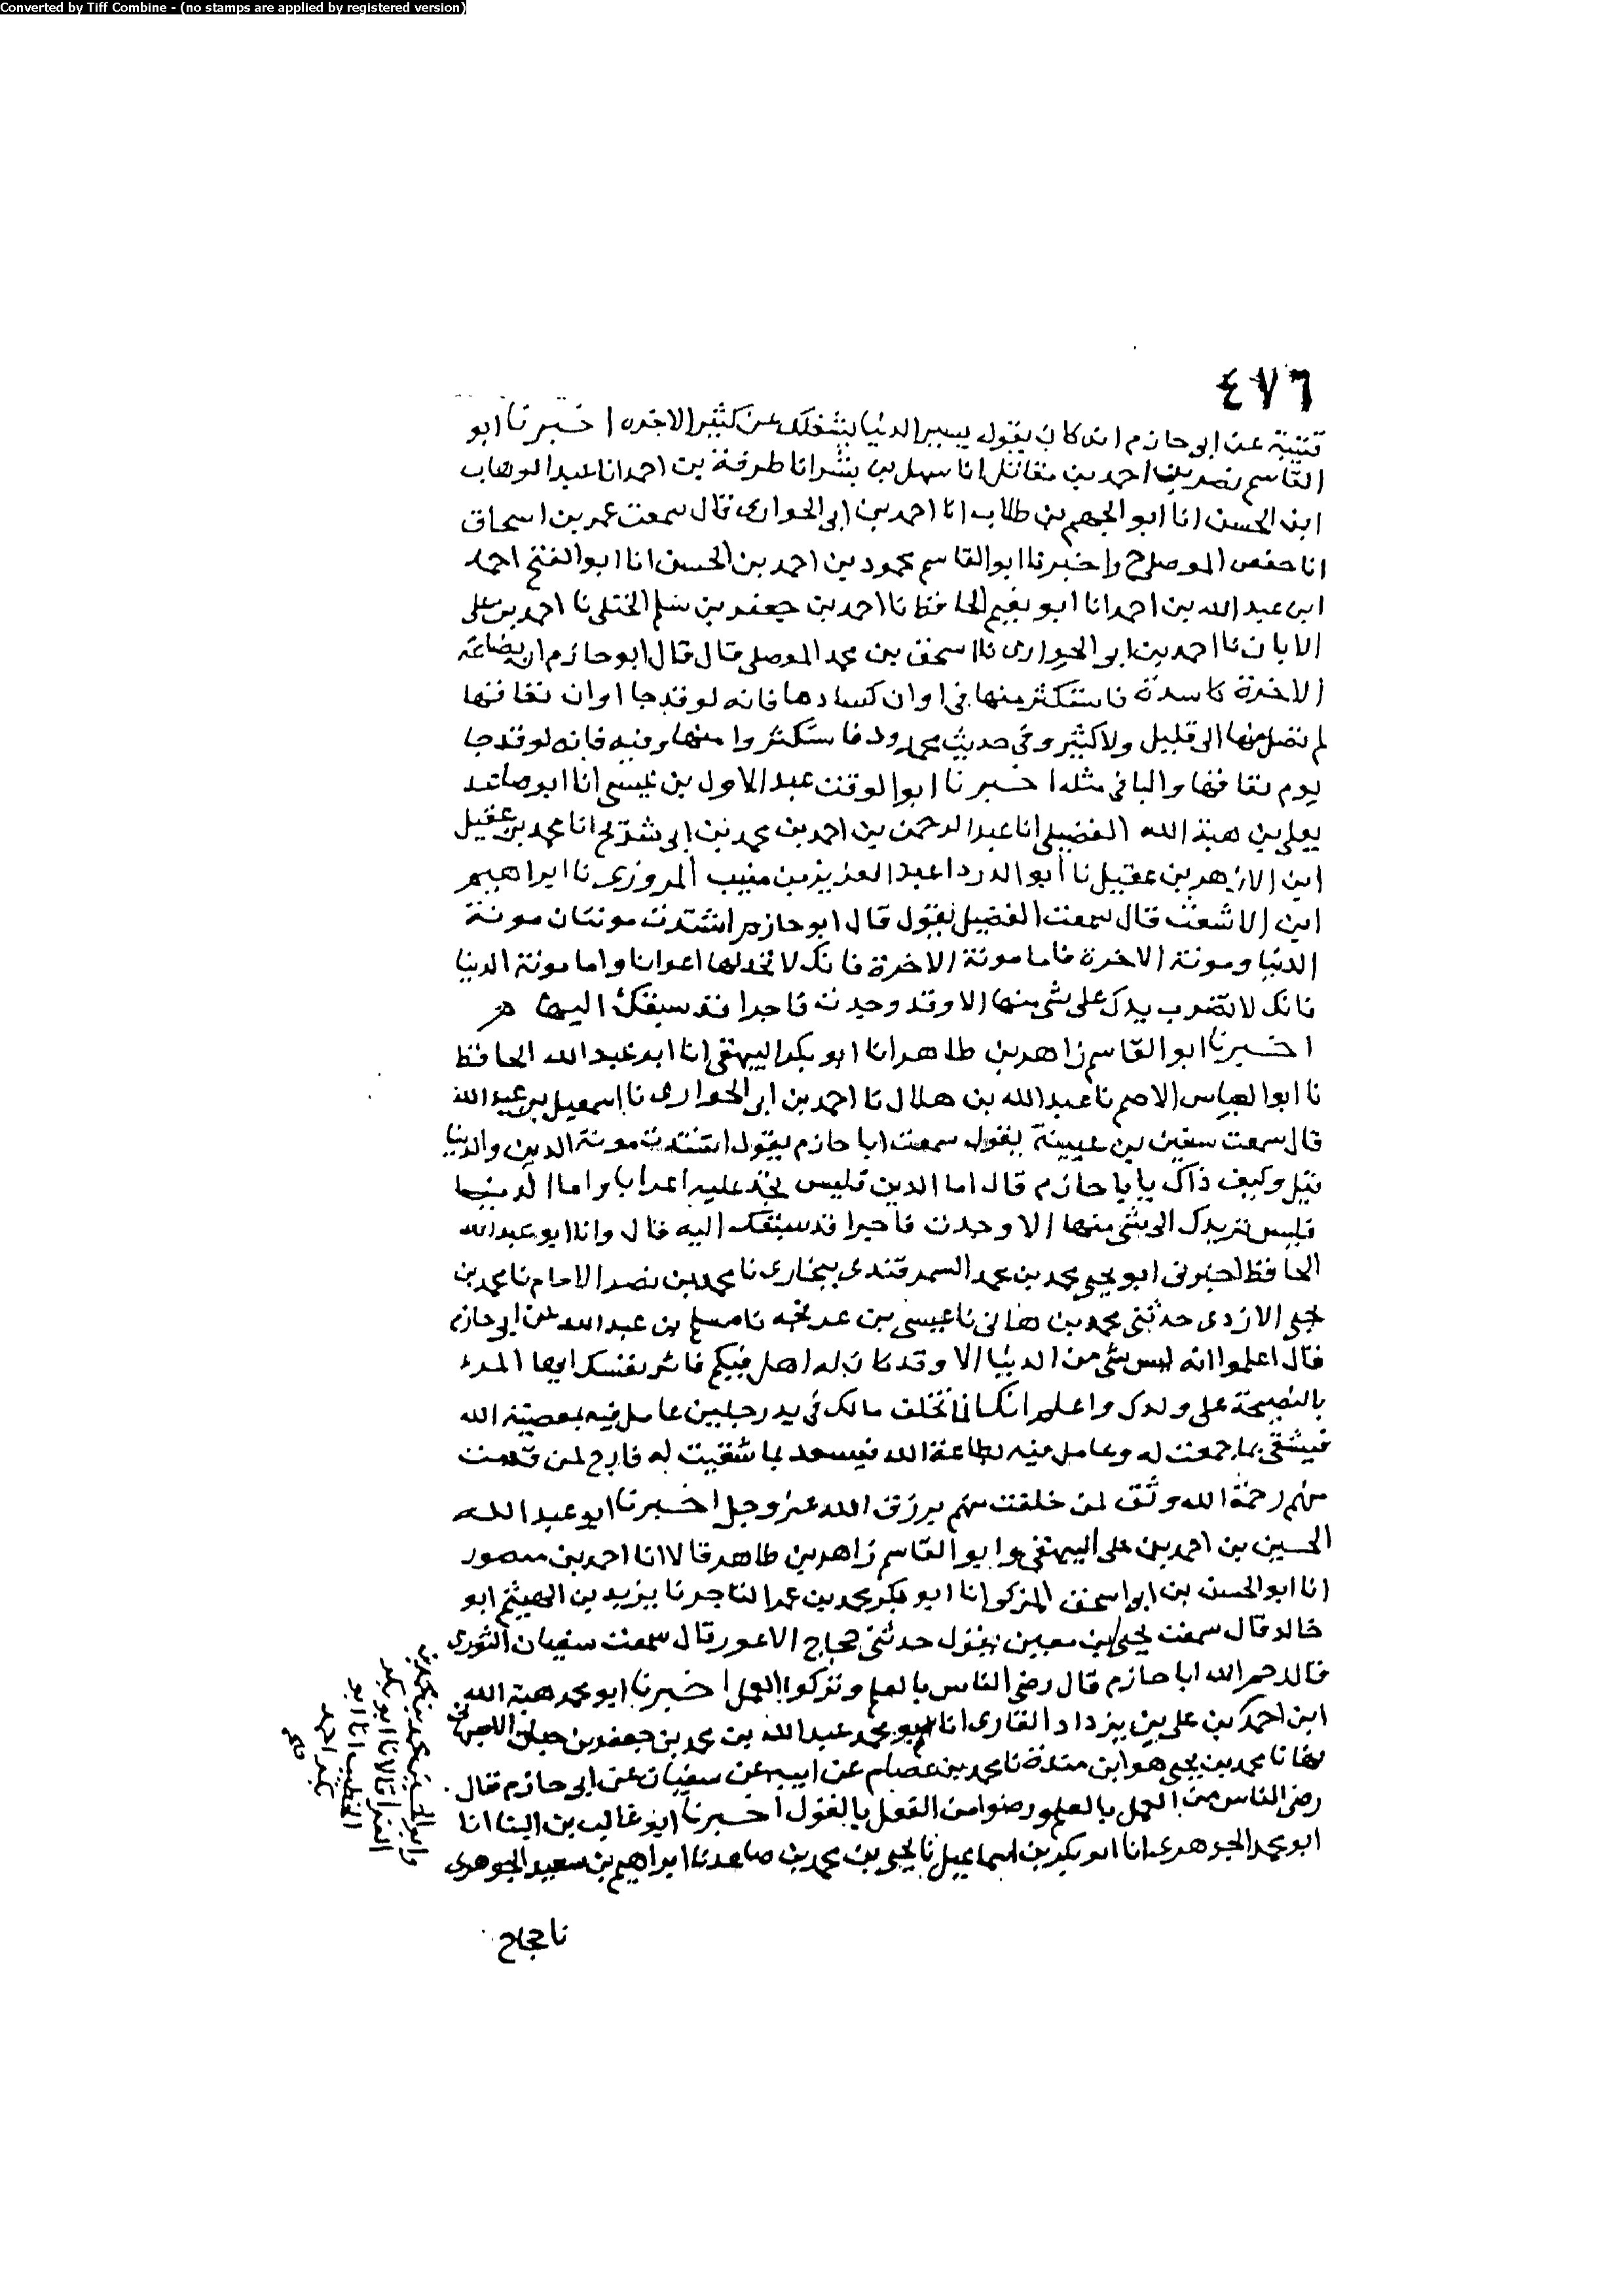 Converted by Tiff Combine - (no stamps are applied by registered version)
٤٧٦
قتيبة عن ابى حازم انه كان يقول يسير الدنيا يشغلك عن كثير الاخره اخبرنا ابو
القاسم نصر بن احمد بن مقاتل انا سهل بن بشر انا طرفة بن احمد انا عبد الوهاب
ابن الحسن انا ابو الجهم بن طلاب انا احمد بن ابى الحوارى قال سمعت عمر بن اسحاق
انا حفص الموصلى ح واخبرنا ابو القاسم محمود بن احمد بن الحسن انا ابو الفتح احمد
ابن عبد الله بن احمد انا ابو نعيم الحافظ نا احمد بن جعفر بن سلم الختلى نا احمد بن على
الابان نا احمد بن ابو الحوارى نا اسحق بن محمد الموصلى قال قال ابو حازم ان بضاعة
الاخرة كاسدة فاستكثر منها فى اوان كسادها فانه لو قد جا اوان نفاقها
لم تصل منها الى قليل ولا كثير وفى حديث محمود فاستكثروا منها وفيه فانه لو قد جا
يوم نفاقها والباقى مثله اخبرنا ابو الوقت عبد الاول بن عيسى انا ابو صاعد
يعلى بن هبة الله الفضيلى انا عبد الرحمن بن احمد بن محمد بن ابى شريح انا محمد بن عقيل
ابن الازهر بن عقيل نا ابو الدردا عبد العزيز بن منيب المروزى نا ابراهيم
ابن الاشعث قال سمعت الفضيل يقول قال ابو حازم اشتدت مونتان مونة
الدنيا ومونة الاخرة فاما مونة الاخرة فانك لا تجد لها اعوانا واما مونة الدنيا
فانك لا تضرب يدك على شى منها الا وقد وجدت فاجرا قد سبقك اليها
اخبرنا ابو القاسم زاهر بن طاهر انا ابو بكر البيهقى انا ابو عبد الله الحافظ
نا ابو العباس الاصم نا عبد الله بن هلال نا احمد بن ابى الحوارى نا اسمعيل بن عبد الله
قال سمعت سفين بن عيينة يقول سمعت ابا حازم يقول اشتدت مونة الدين والدنيا
قيل وكيف ذاك يا با حازم قال اما الدين فليس تجد عليه اعوانا واما الدنيا
فليس تمد يدك الى شى منها الا وجدت فاجرا قد سبقك اليه قال وانا ابو عبد الله
الحافظ اخبرنى ابو يحيى محمد بن محمد السمرقندى ببخارى نا محمد بن نصر الامام نا محمد بن
يحيى الازدى حدثنى محمد بن هانى نا عيسى بن نا مسلم بن عبد الله عن ابى حازم
قال اعلموا انه ليس شى من الدنيا الا وقد كان له اهل قبلكم فاثر نفسك ايها المرء
بالنصيحة على ولدك واعلم انك انما تخلف مالك فى يد رجلين عامل فيه بمعصية الله
فيشقى بما جمعت له وعامل فيه بطاعة الله فيسعد بما شقيت له فارج لمن قدمت
منهم رحمة الله وثق لمن خلفت منهم برزق الله عز وجل اخبرنا ابو عبد الله
الحسين بن احمد بن على البيهقى وابو القاسم زاهر بن طاهر قالا انا احمد بن منصور
انا ابو الحسن بن ابو اسحق المزكى انا ابو بكر محمد بن عمر التاجر نا يزيد بن الهيثم ابو
خالد قال سمعت يحيى بن معين يقول حدثنى حجاج الاعور قال سمعت سفيان الثورى
قال رحم الله ابا حازم قال رضى الناس بالعلم وتركوا العمل اخبرنا ابو محمد هبة الله
ابن احمد بن على بن يزداد القارى انا ابو محمد عبد الله بن محمد بن جعفر بن حيان
بها نا محمد بن يحيى هو ابن مندة نا محمد بن عصام عن ابيه عن سفيان عن ابى حازم قال
رضى الناس من العمل بالعلم ورضوا من الفعل بالقول اخبرنا ابو غالب بن البنا انا
ابو محمد الجوهرى انا ابو بكر بن اسماعيل نا يحيى بن محمد بن صاعد نا ابراهيم بن سعيد الجوهرى
نا حجاج
وابو الحسين محمد بن محمد بن
الفرا قالا نا ابو بكر
الخطيب انا ابو
بكر احمد